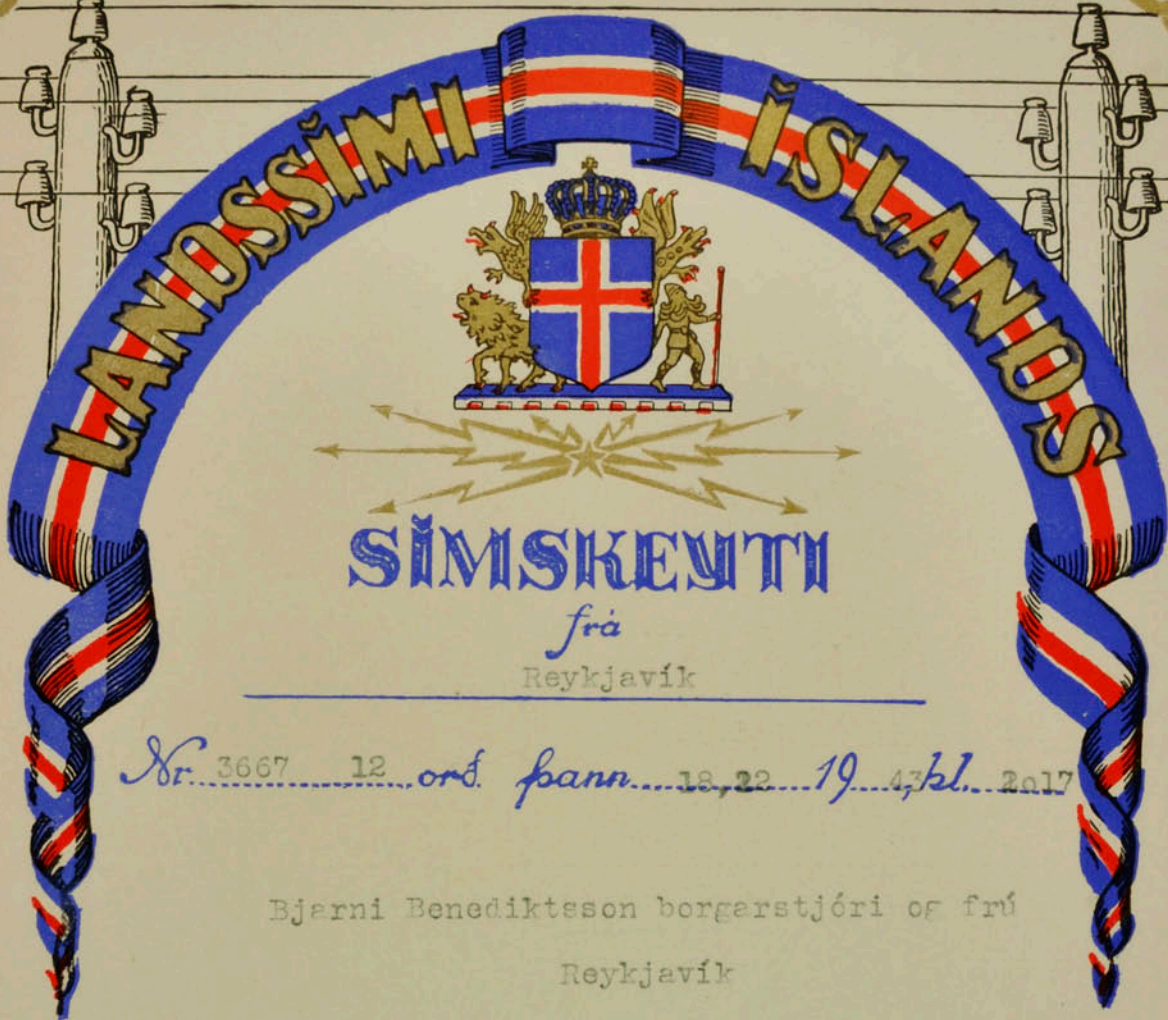 LANDSSÍMI ÍSLANDS
SÍMSKEYTI
frá
Reykjavík
Nr. 3667 12 orð. þann 18,12 19 43, kl. 2017
Bjarni Benediktsson borgarstjóri og frú
Reykjavík